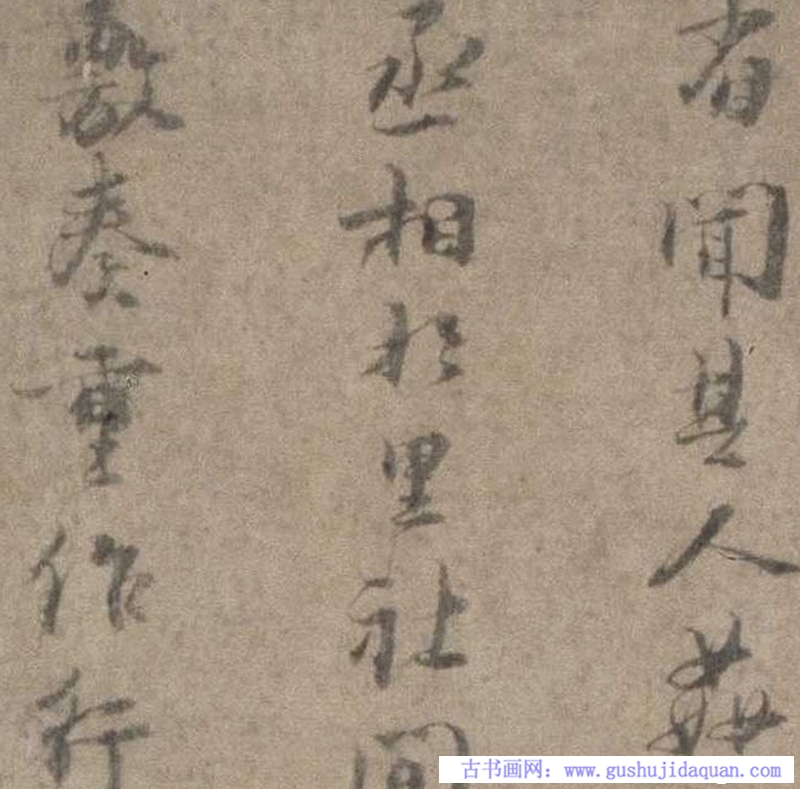 省聞其人
丞相於里社間
數奏重作行
古书画网：www.gushujidaquan.com